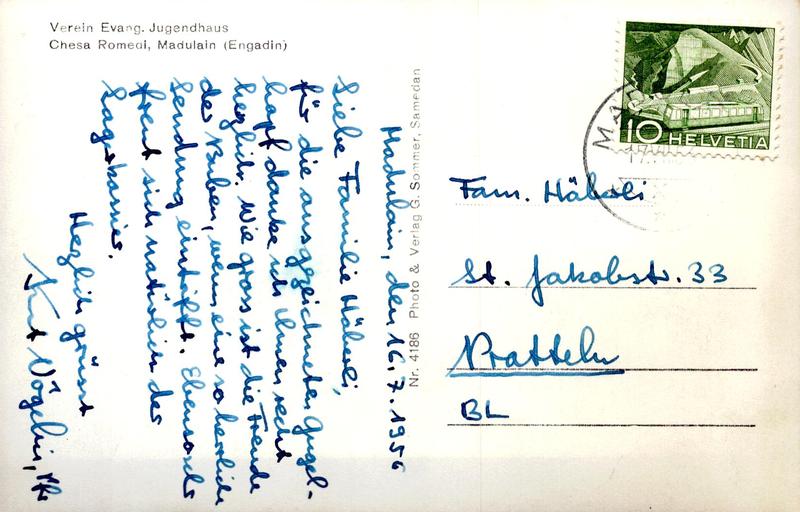 Verein Evang. Jugendhaus
Chesa Romedi, Madulain (Engadin)
Madulain, den 16.7.1956
Liebe Familie Häberli,
für die ausgezeichneten Gugel-
hopf danke ich Ihnen recht
herzlich. Wie gross ist die Freude
der Buben, wenn eine so herrliche
Sendung eintrifft. Ebenso
freut sich natürlich der
Lagerkassier.
Herzlich grüsst
Kurt Vögelin, Pfr
Nr. 4186 Photo & Verlag G. Sommer, Samedan
10 HELVETIA
Fam. Häberli
St. Jakobstr. 33
Pratteln
BL